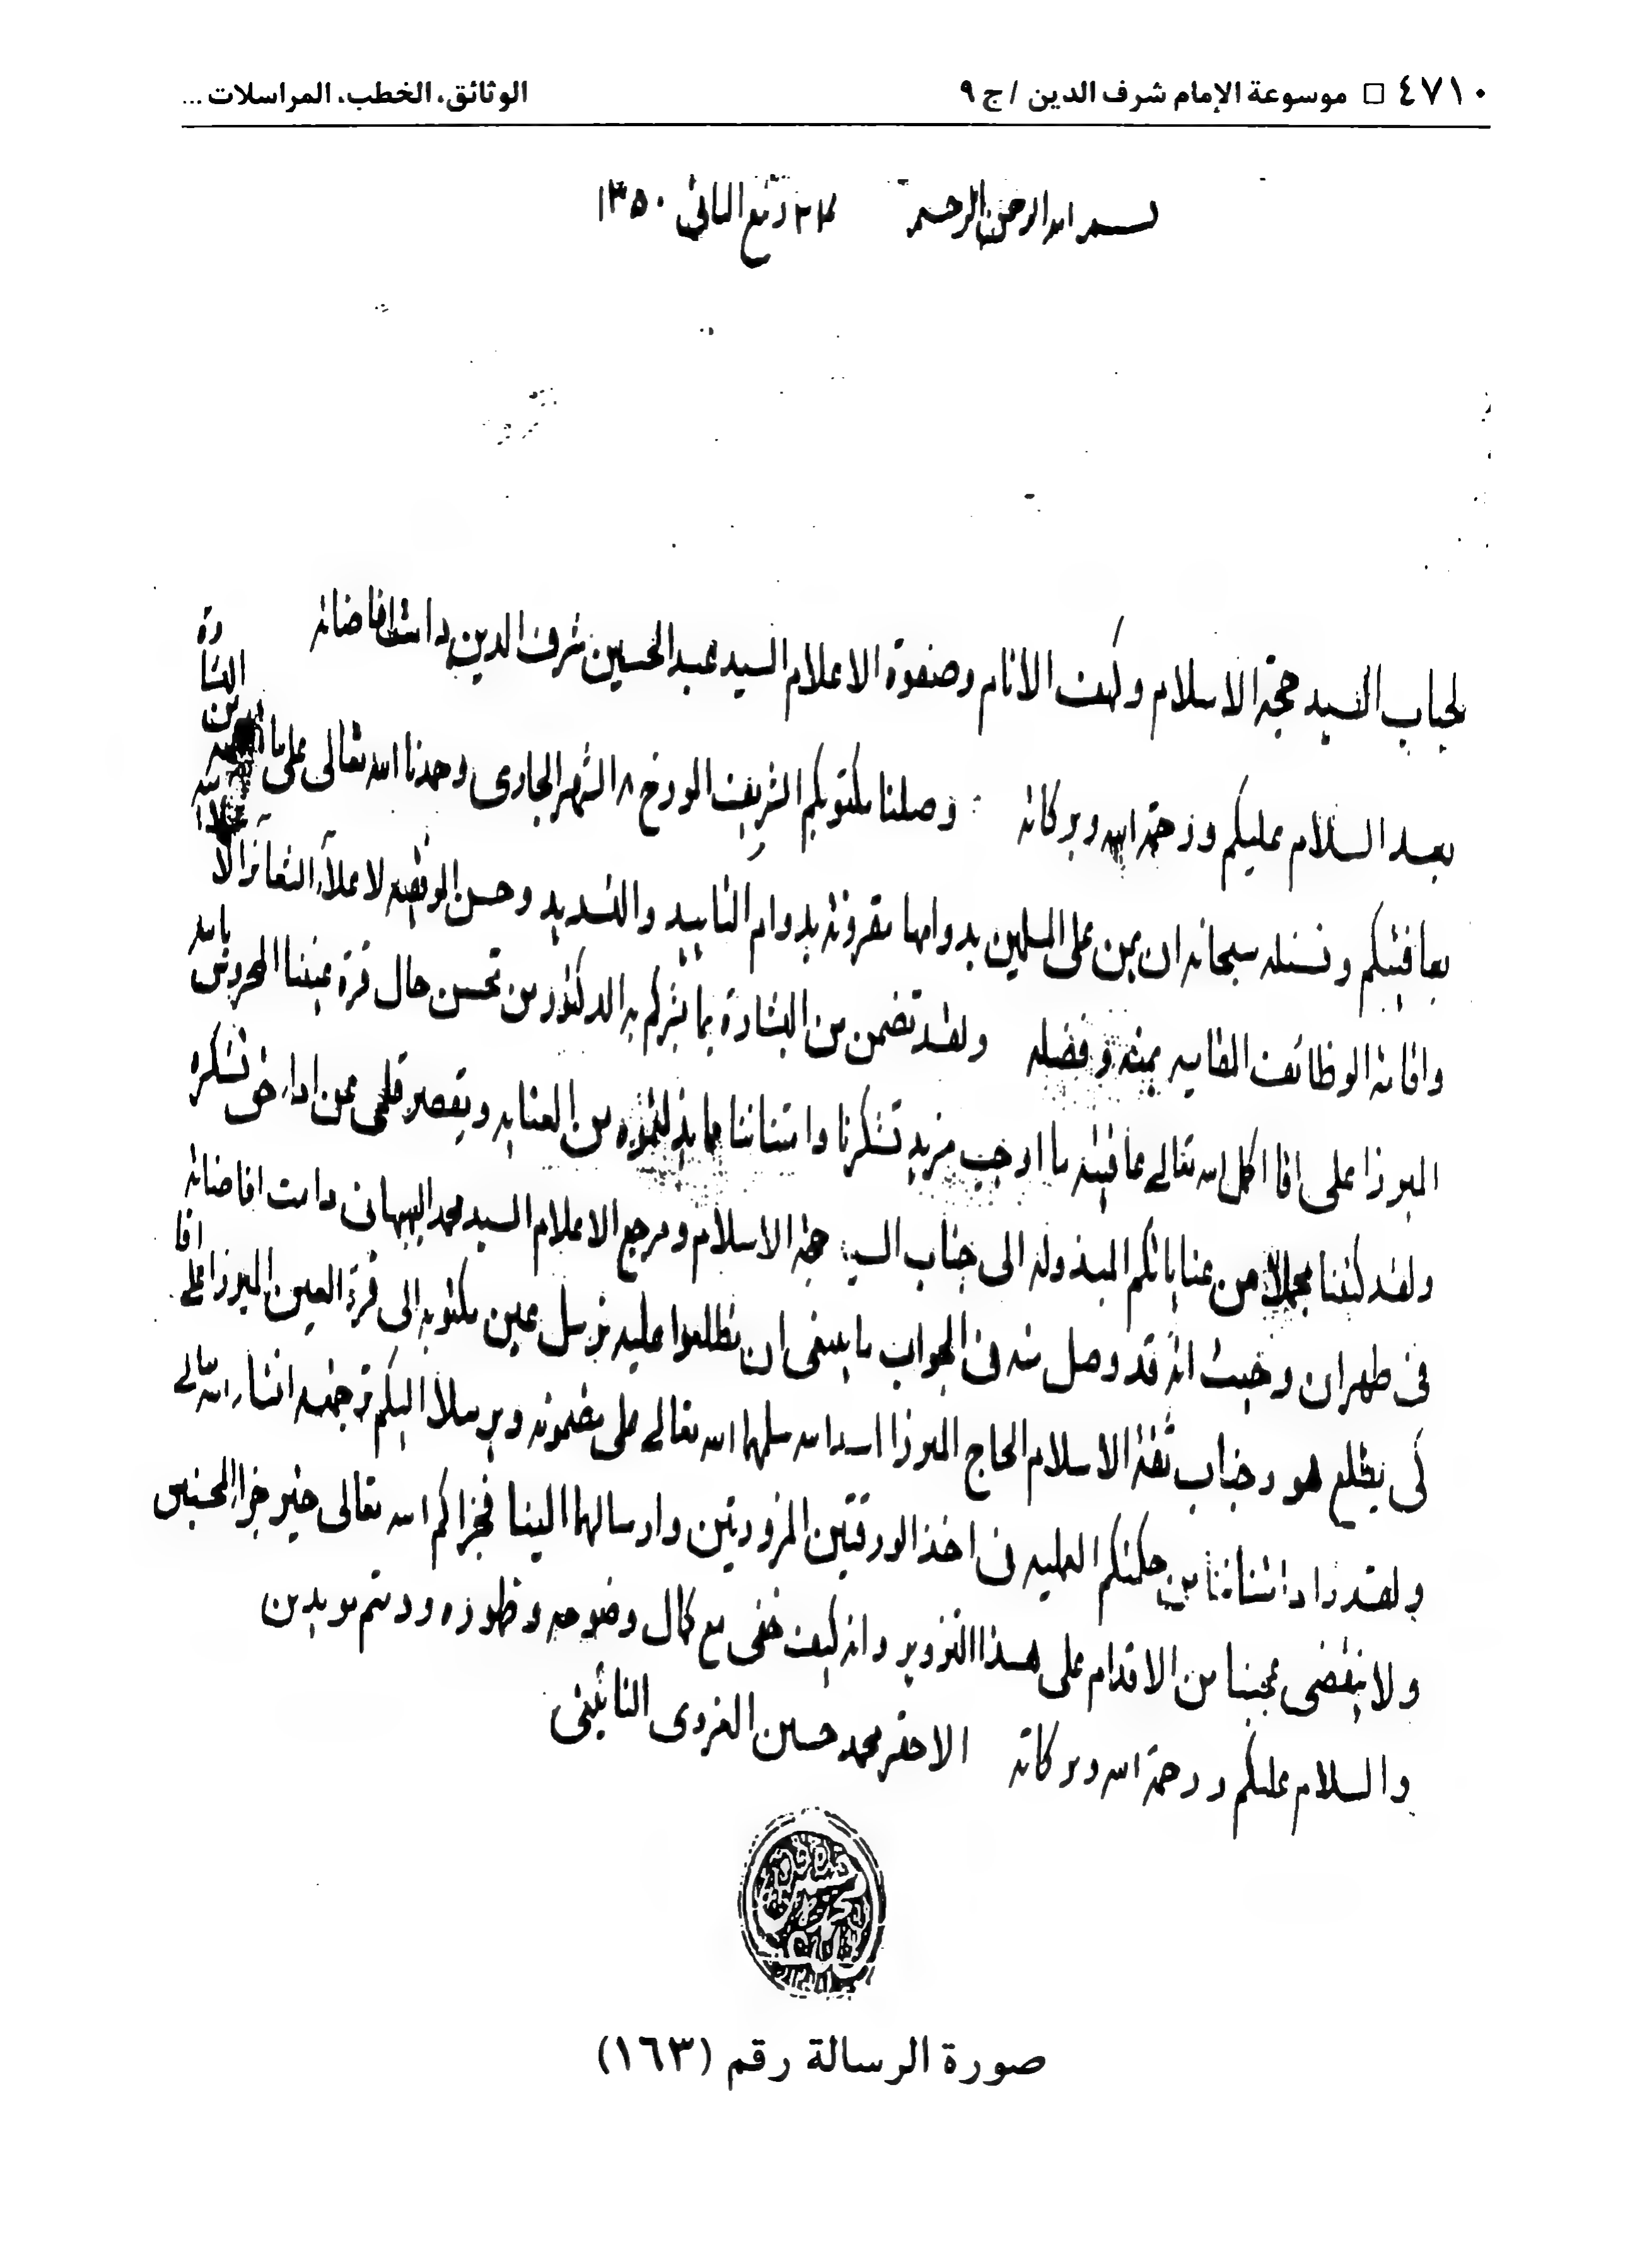 ٤٧١٠ □ موسوعة الإمام شرف الدين / ج ٩
الوثائق، الخطب، المراسلات ...
بسم الله الرحمن الرحيم ٢٢ ربيع الثاني ١٣٥٠
لجناب السيد حجة الاسلام وكهف الانام وصفوة الاعلام السيد عبد الحسين شرف الدين دامت افاضاته
بعد السلام عليكم ورحمة الله وبركاته وصلنا مكتوبكم الشريف المورخ ٨ الشهر الجاري وحمدنا الله تعالى على ما
بعافيتكم ونسئله سبحانه ان يمن على المسلمين بدوامها مقرونة بدوام التاييد والتسديد وحسن التوفيق لاعلاء الشعائر الا
واقامة الوظائف المقامية بمنه وفضله ولقد تضمن من البشارة بما بشركم به الدكتور من تحسن حال قرة عيننا المحروس بالله
الميرزا على اقا اكمل الله تعالى عافيته ما اوجب مزيد تشكرنا وامتناننا مما بذلتموه من العناية ويقصر قلمي عن اداء حق تشكره
ولقد كتبنا مجملا من عناياتكم المبذولة الى جناب السيد حجة الاسلام ومرجع الاعلام السيد محمد البهبهاني دامت افاضاته
في طهران وحيث انه قد وصل منه في الجواب ما ينبغي ان تطلعوا عليه نرسل عين مكتوبه الى قرة العين الميرزا على اقا
كي يطلع هو وجناب ثقة الاسلام الحاج الميرزا اسد الله سلمهما الله تعالى على مضمونه ويرسلا اليكم ترجمته انشاء الله تعالى
ولقد زاد امتناننا من حكمتكم العلمية في اخذ الورقتين المزورتين وارسالهما الينا فجزاكم الله تعالى خير جزاء المحسنين
ولا ينقضي عجبنا من الاقدام على هذا التزوير وانه كيف خفي مع كمال وضوحه وظهوره ودمتم مويدين
والسلام عليكم ورحمة الله وبركاته الاحقر محمد حسين الغروي النائيني
صورة الرسالة رقم (١٦٣)